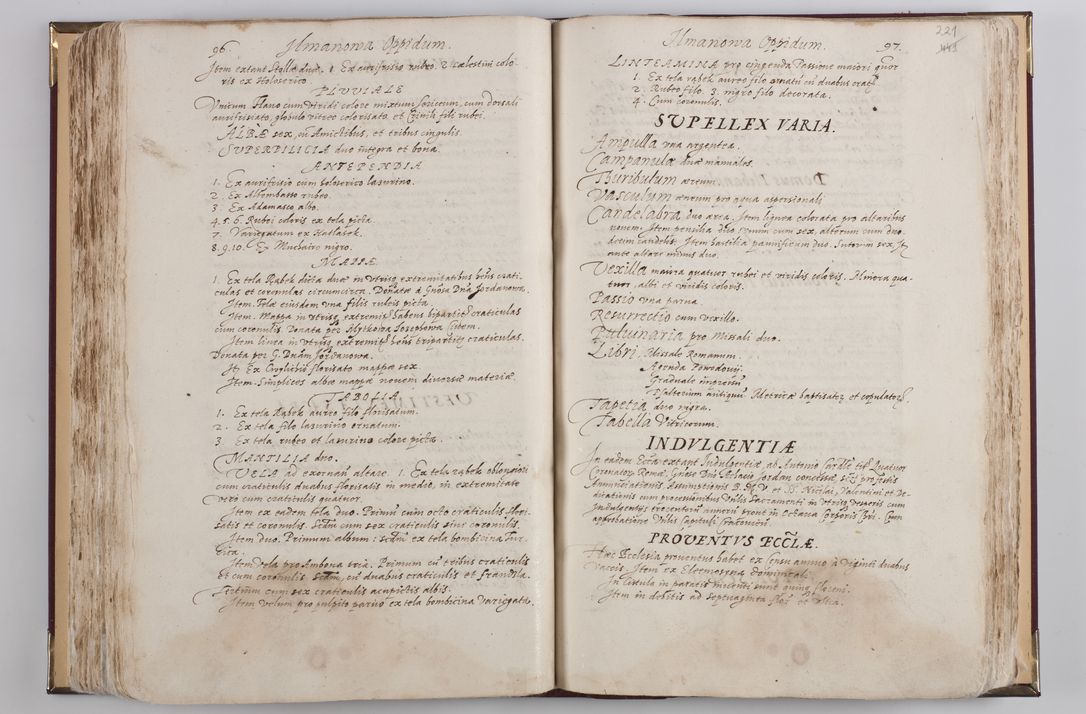 96. Ilmanowa Oppidum.
Item extant Stollæ duæ. 1. Ex aurifrisio rubeo. 2. Cælestini colo-
ris ex Holoserico.
PLUVIALE
Unicum. Flavo cum viridi colore mixtum sericeum, cum dorsali
aurifrisiato, globulo vitreo colorisato, et fili rubei.
ALBÆ sex, cũ Amictibus, et tribus cingulis.
SUPERPILICIA duo integra et bona.
ANTEPENDIA
1. Ex aurifrisio cum holoserico lasurino.
2. Ex Altembasso rubeo.
3. Ex Adamasco albo.
4. 5. 6. Rubei coloris ex tela picta.
7. Variegatum ex Hatlasek.
8. 9. 10. Ex Muchairo nigro.
MAPPÆ
1. Ex tela Rąbek dicta duæ in utrisq extremitatibus hñs crati-
culas et coronulas circumcirca. Donatæ à Gñosa Dña Jordanowa.
Item. Tela eiusdem una filis rubeis picta.
Item. Mappa in utrisq extremit habens bipartit craticulas
cum coronulis. Donata per Josephowa
Item linea in utrisq extremit hñs tripartitas craticulas.
Donata per G. Dnãm Jordanowa.
It. Ex florisato mappæ sex.
Item. Simplices albæ mappæ novem diversæ materiæ.
FABOLIA
1. Ex tela Rąbek aureo filo florisatum.
2. Ex tela filo lasurino ornatum.
3. Ex tela rubeo et lasurino colore picta.
MANTILIA duo.
VELA ad exornan altare. 1. Ex tela rąbek oblongiori
cum craticulis duabus florisatis in medio, in extremitate
vero cum craticulis quatuor.
Item ex eadem tela duo. Primũ cum octo craticulis flori-
satis et coronulis. Scdm cum sex craticulis sine coronulis.
Item duo. Primum album: scdm ex tela bombicina Tur-
cica.
Item Vela pro Ambona tria. Primum cũ tribus craticulis
et cum coronulis. Scdm, cũ duabus craticulis et frandila.
Tertium cum sex craticulis acupictis albis.
Item velum pro pulpito parvo ex tela bombicina variegata.
Ilmanowa Oppidum. 97.
221
LINTEAMINA pro cingenda Passione maiori quor
1. Ex tela rąbek aureo filo ornatũ cũ duabus crat
2. Rubeo filo. 3. nigro filo decorata.
4. Cum coronulis.
SUPELLEX VARIA.
Ampulla una argentea.
Campanulæ duæ manuales.
Thuribulum æreum.
Vasculum æreum pro aqua aspersionali
Candelabra duo ærea. Item lignea colorata pro altaribus
novem. Item pensilia duo, unum cum sex, alterum cum duo-
decim candelis. Item hastilia pannificum duo. Sutorum sex. It
ante altare minus duo.
Vexilla maiora quatuor rubei et viridis coloris. Minora qua
tuor, albi et viridis coloris.
Passio una parva.
Resurrectio cum vexillo.
Pulvinaria pro Missali duo.
Libri. Missale Romanum.
Agenda Powodowij.
Graduale impressũ
Psalterium antiquũ. Metricæ baptisator et copulator.
Tapetia duo nigra.
Tabella Vitricorum.
INDULGENTIÆ
In eadem Eccła extant Indulgentiæ, ab Antonio Cardle tit Quatuor
Coronator Romæ, Gñoso Dño Achacio Jordan concessæ, scłt pro festis
Annunciationis Assumptionis B. M. V. et D. Nicolai, Valentini et De-
dicationis cum processionibus Vñbilis Sacramenti in utrisq vesperis cum
Indulgentijs trecentorũ annorũ Octava Corporis Chri. Cum
approbatione Vñbilis Capituli Cracovien
PROVENTUS ECCLÆ.
Hæc Ecclesia proventus habet ex Censu annuo à Viginti duabus
vaccis. Item ex Eleemosyna dominicali.
In cistula in paratis inventi sunt quinq floreni.
Item in debitis ad septuaginta flor et ultra.